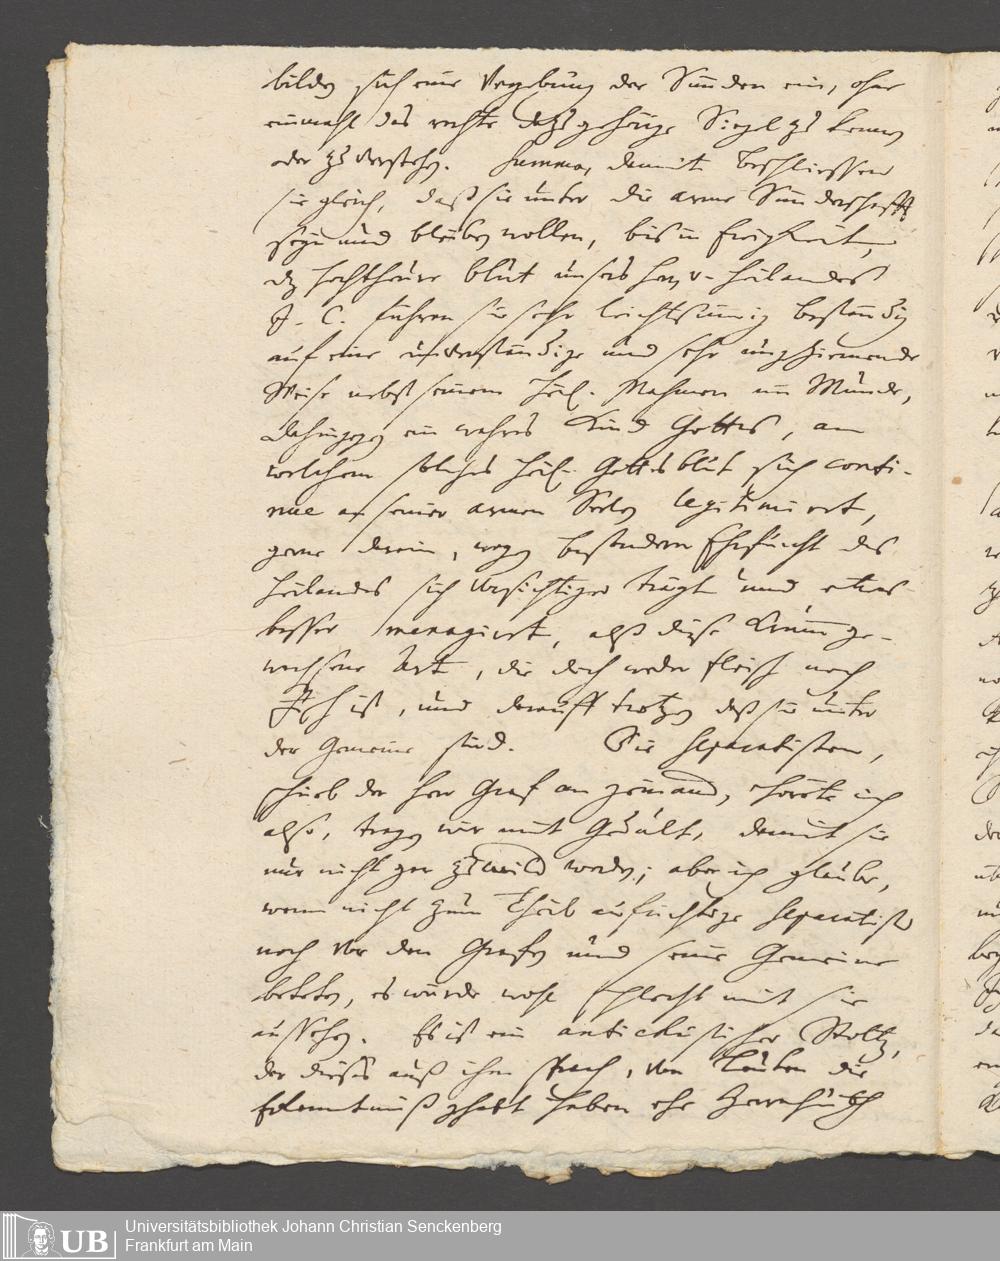 bilden sich eine Vergebung der Sünden ein, ohne
einmahl das rechte dazu gehörige Siegel zu kennen
oder zu verstehen. Summa, damit beschliessen
sie gleich, daß sie unter die arme Sünderschafft
seyn und bleiben wollen, bis in Ewigkeit,
das hochtheure blut unsers Herrn u. Heilandes
J. C. führen sie sehr leichtsinnig beständig
auf eine unverständige und sehr ungeziemende
Weise nebst seinem heil. Nahmen im Munde,
Dahingegen ein wahres Kind Gottes, an
welchem solches heil. Gottes blut sich conti-
nue an seiner armen Seelen legitimiret,
gerne darein, wegen besonderer Ehrfurcht des
Heilandes sich vorsichtiger trägt und etwas
besser menagiret, alß diese krumm ge-
wachsene Art, die doch weder fleisch noch
Fisch ist, und darauff trotzen daß sie unter
der Gemeine sind. Die Separatisten,
schrieb der Herr Graf an jemand, hörete ich
also, tragen wir mit Gedult, damit sie
nur nicht gar zu wild werden; aber ich glaube,
wenn nicht zum Theil aufrichtige Separatisten
noch vor den Grafen und seine Gemeine
beteten, es würde wohl schlecht mit sie
aussehen. Es ist ein antichristischer Stoltz,
der dieses auß ihm sprach, von Leuten die
Erkenntniß gehabt haben ehe
Universitätsbibliothek Johann Christian Senckenberg
Frankfurt am Main
UB